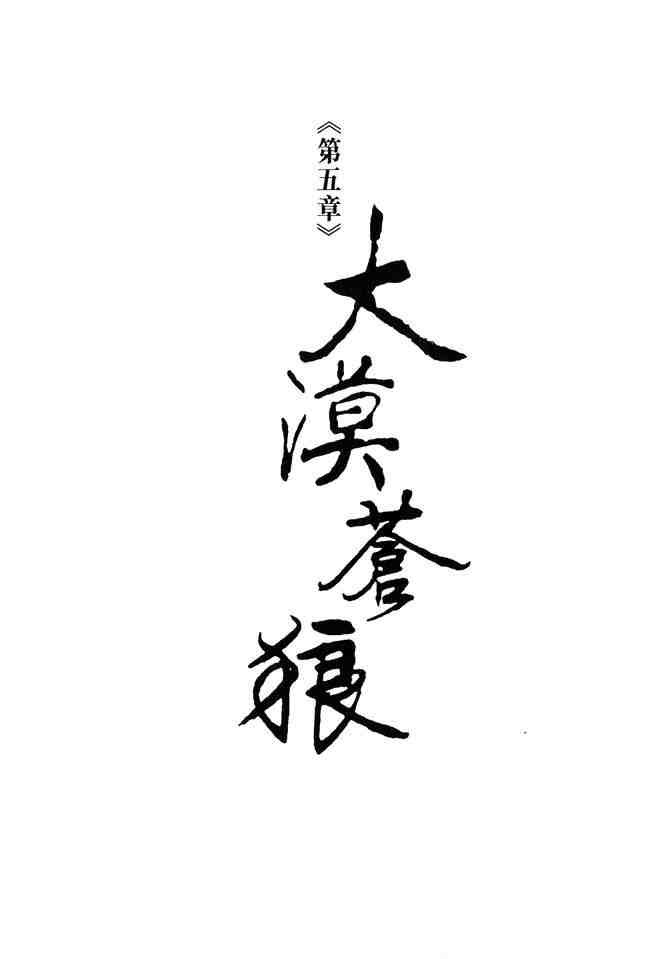 《第五章》
大漠蒼狼